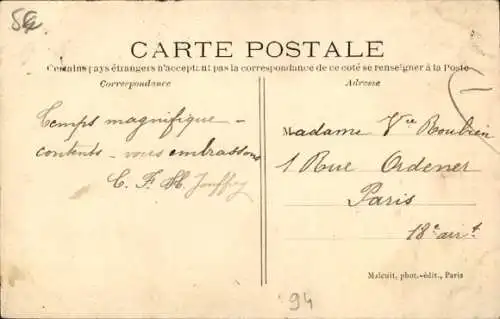 CARTE POSTALE
Certains pays étrangers n'acceptent pas la correspondance de ce coté se renseigner à la Poste
Correspondance
Adresse
Temps magnifique -
contents - vous embrassons
C. F. H. Jouffroy
Madame Vve Roubien
1 Rue Ordener
Paris
18e arrt
Malcuit, phot.-édit., Paris
94